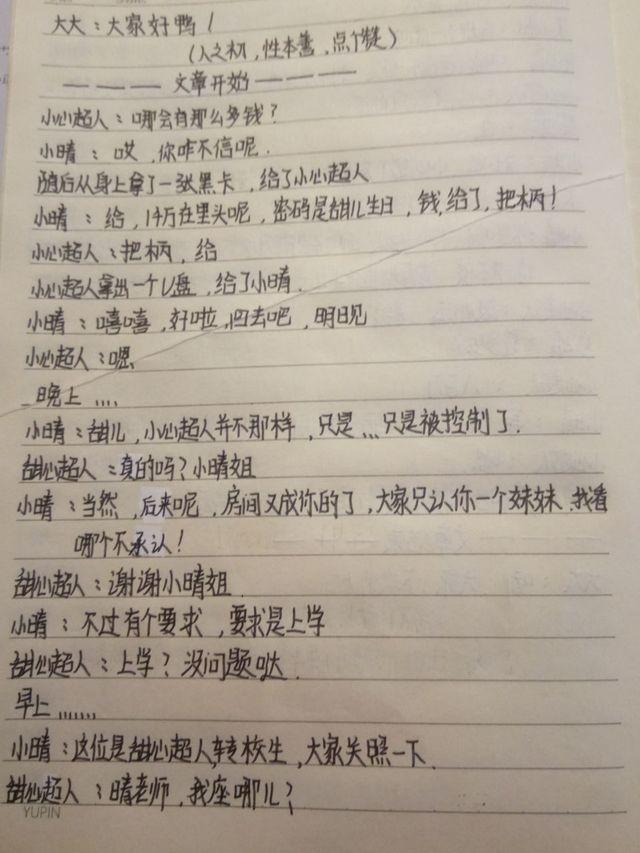 大大：大家好鸭！
（人之初，性本善，点个赞）
———— 文章开始 ————
小心超人：哪会有那么多钱？
小晴：哎，你咋不信呢．
随后从身上拿了一张黑卡，给了小心超人
小晴：给，1千万在里头呢，密码是甜儿生日，钱，给了，把柄！
小心超人：把柄，给
小心超人拿出一个U盘，给了小晴．
小晴：嘻嘻，好啦，回去吧，明日见
小心超人：嗯
晚上....
小晴：甜儿，小心超人并不那样，只是...只是被控制了．
甜心超人：真的吗？小晴姐
小晴：当然，后来呢，房间又成你的了，大家只认你一个妹妹．我看
哪个不承认！
甜心超人：谢谢小晴姐．
小晴：不过有个要求，要求是上学
甜心超人：上学？没问题哒．
早上......
小晴：这位是甜心超人，转校生，大家关照一下．
甜心超人：晴老师，我座哪儿？
YUPIN